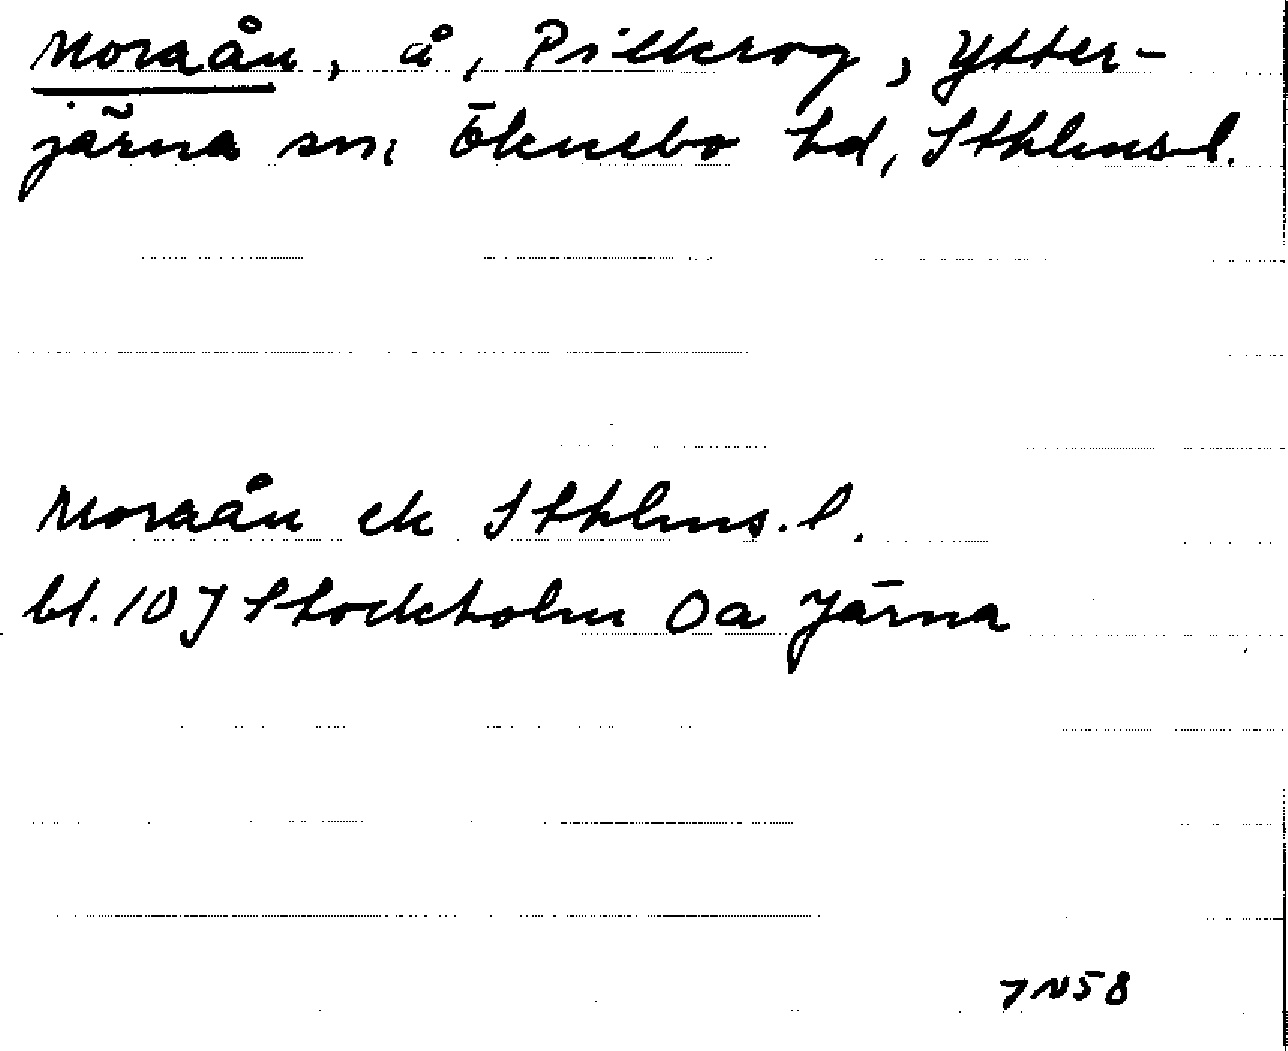 Moraån, å, Pilkrog, Ytter-
järna sn, Öknebo hd, Sthlms l.
Moraån ek Sthlms. l.
bl. 10 J Stockholm 0a Järna
7N58